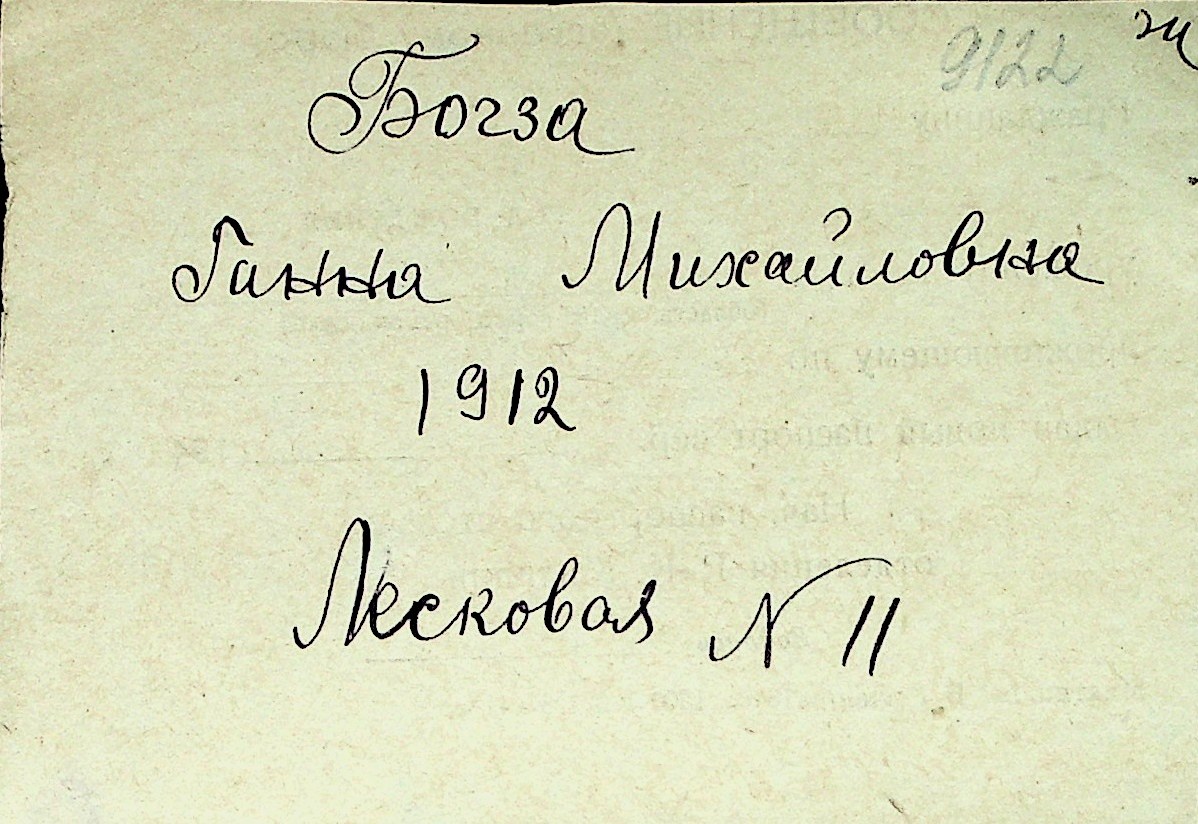 9122 ж
Богза
Ганна Михайловна
1912
Лесковая N 11